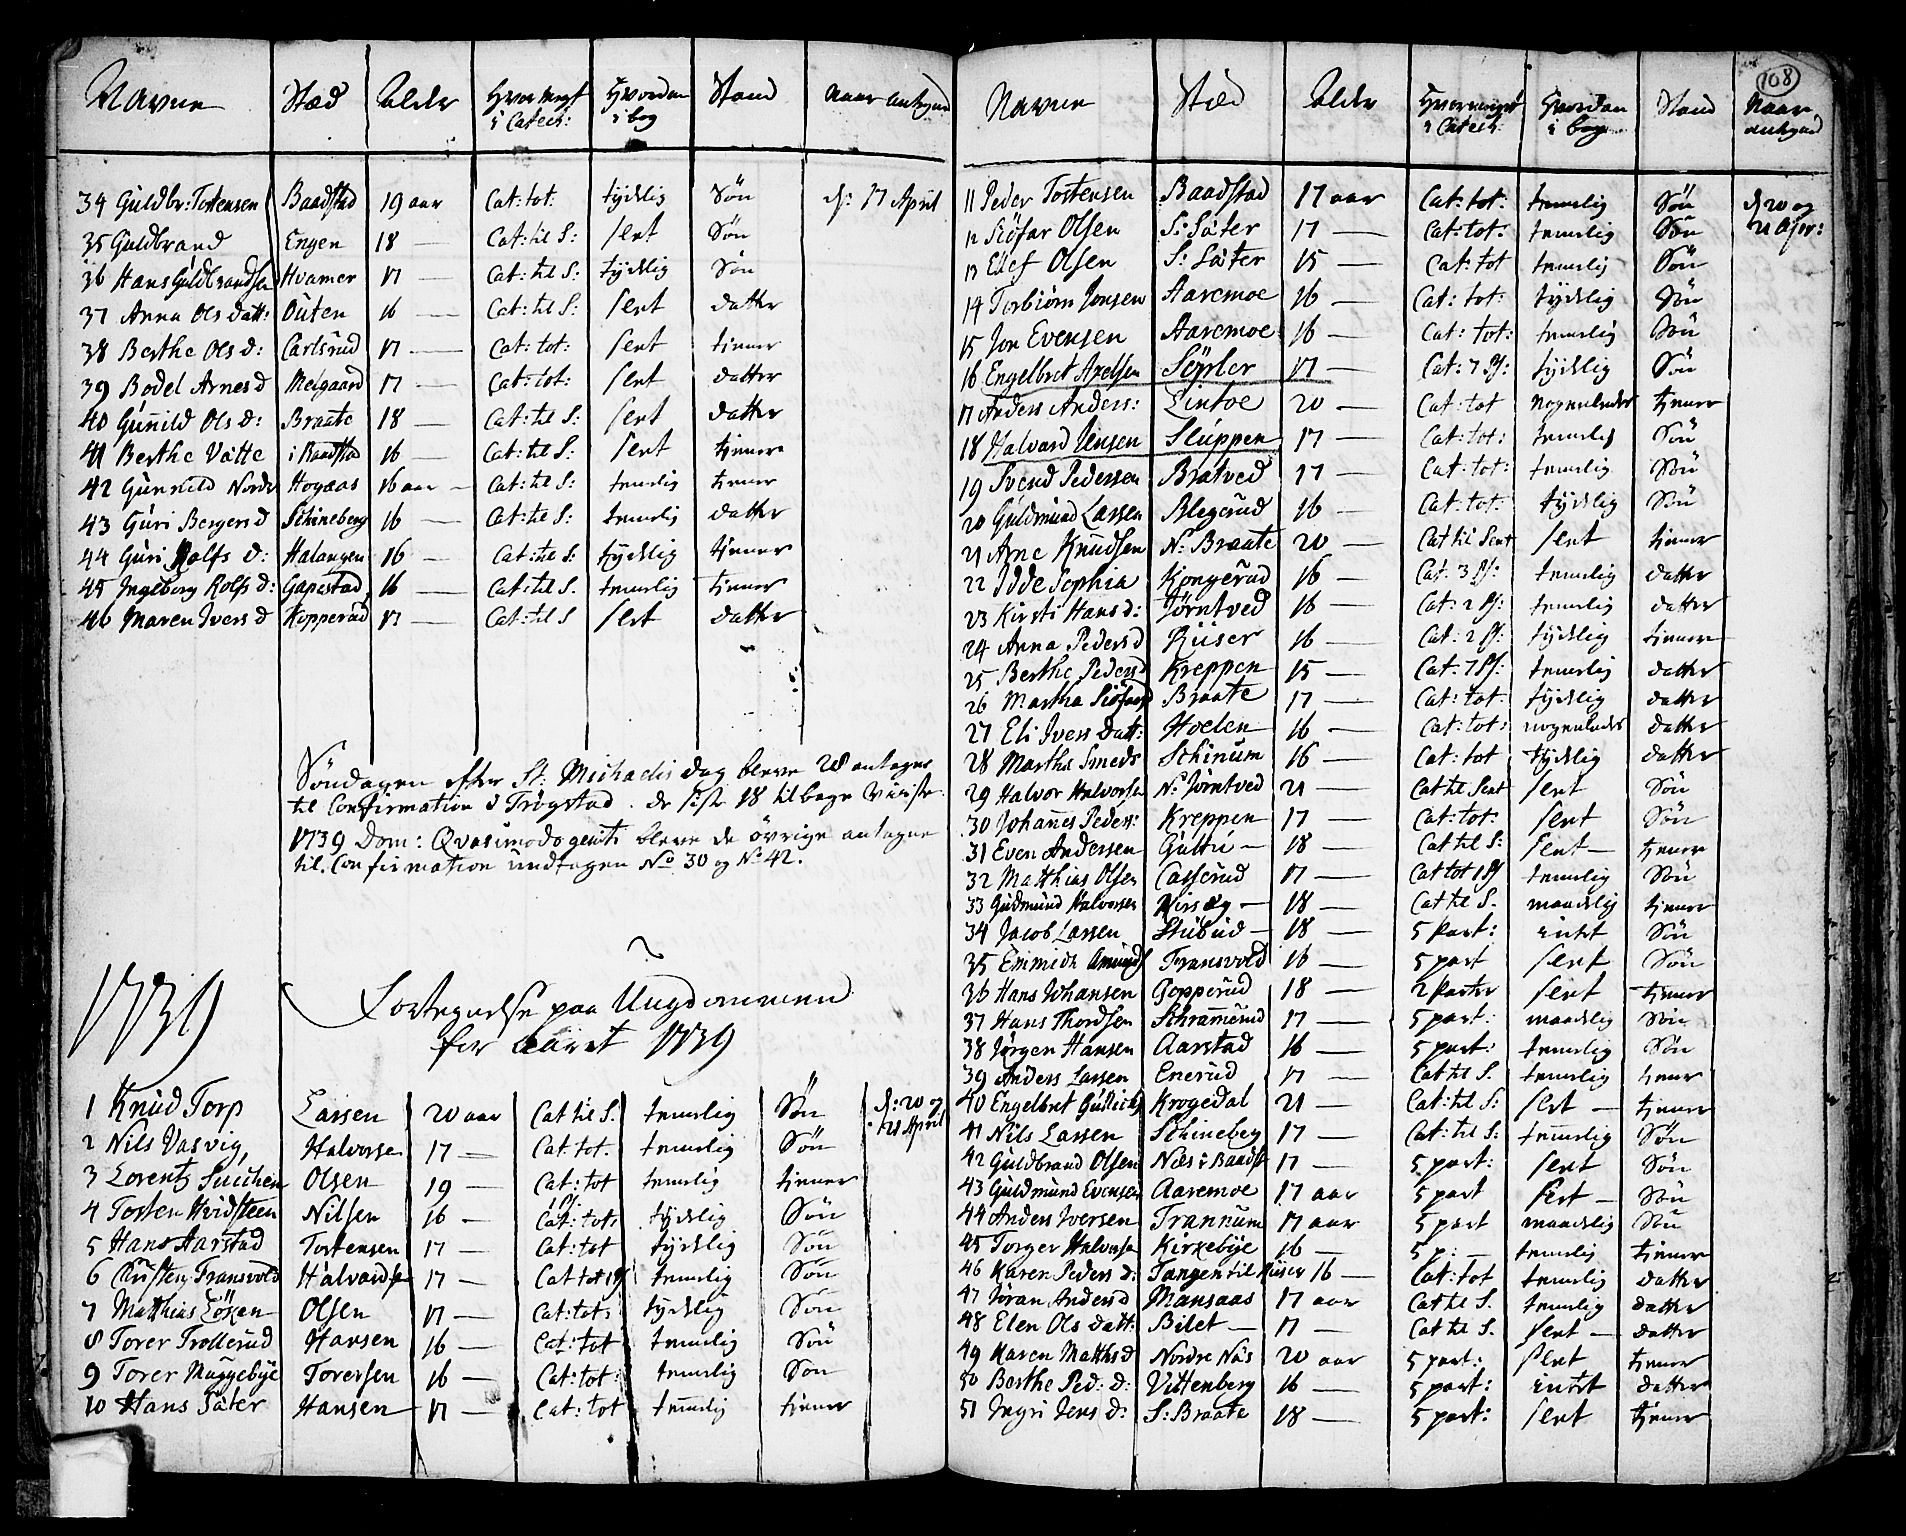 Navne Stæd Alder Hvor vigt i Catech: Hvordan i bog Stand Naar antegned
34 Guldbr: Tostensen Baadstad 19 aar Cat: tot: tydelig Søn d: 17 April
35 Guldbrand Engen 18 — Cat: til S: slet Søn
36 Hans Guldbrandsen Hvamer 17 — Cat: til S: tydelig Søn
37 Anna Ols datt: Outen 16 — Cat: til S: slet datter
38 Berthe Ols d: Carlsrud 17 — Cat: tot: slet tiener
39 Bodel Arnes d Melgaard 17 — Cat: tot: slet datter
40 Gunnild Ols d: Braate 18 — Cat: til S: slet datter
41 Berthe Vatte i Baadstad 16 — Cat: til S: slet tiener
42 Gunnild Nordr Hogaas 16 aar — Cat: til S: temelig tiener
43 Guri Bergers d Schineberg 16 — Cat: til S: temelig datter
44 Guri Rolfs d: Halangen 16 — Cat: til S: tydelig tiener
45 Ingeborg Rolfs d: Gapestad 16 — Cat: til S. temelig tiener
46 Maren Ivers d Kopperud 17 — Cat: til S slet datter
Søndagen efter St: Michaelis dag bleve 28 antagne
til Confirmation i Trøgstad. de siste 18 tilbage viiste.
1739 Dom: Qvasimodogeniti bleve de øvrige antagne
til Confirmation undtagen No 30 og No 42.
1739 Fortegnelse paa Ungdommen
for Aaret 1739
1 Knud Torp Lassen 20 aar Cat til S. temelig Søn d: 20 og
21 April
2 Nils Vasvig, Halvorse 17 — Cat: tot. temelig Søn
3 Lorentz Suchen Olsen 19 — Cat: tot temelig tiener
4 Tosten Hvidsteen Nilsen 16 — Cat: tot: tydelig Søn
5 Hans Aarstad Tostensen 17 — Cat: tot tydelig Søn
6 Christen Transvold Halvordse 17 — Cat tot temelig Søn
7 Matthias Løken Olsen 17 — Cat: tot: tydelig Søn
8 Torer Trollerud Hansen 16 — Cat: tot temelig Søn
9 Torer Muggebye Torersen 16 — Cat: tot: temelig Søn
10 Hans Sater Hansen 17 — Cat: tot temelig tiener
108
Navne Stæd Alder Hvor vigt i Catech: Hvordan i bog Stand Naar antegned
11 Peder Tostensen Baadstad 17 aar Cat: tot: temelig Søn d 20 og
21 Apr:
12 Siøfar Olsen S: Sater 17 — Cat: tot: temelig Søn
13 Ellef Olsen S: Sater 15 Cat: tot temelig Søn
14 Torbiørn Jonsen Aaremoe 16 — Cat: tot: tydelig Søn
15 Jon Evensen Aaremoe 16 — Cat: tot: temelig Søn
16 Engelbret Axelsen Seyrler 17 — Cat: 7 P: tydelig Søn
17 Anders Anders: Lintoe 20 — Cat: tot nogenledes tiener
18 Halvard Jensen Sluppen 17 — Cat: tot: temelig Søn
19 Svend Pedersen Bratved 17 — Cat: tot: temelig Søn
20 Guldmund Lassen Blegerud 16 — Cat: tot: tydelig Søn
21 Arne Knudsen N: Braate 20 — Cat til Sent slet tiener
22 Idde Sophia Kongerud 16 — Cat: 3 P: temelig datter
23 Kirsti Hans d: Jørntved 16 — Cat: 2 P: temelig datter
24 Anna Peders d Kiiser 16 — Cat: 2 P: tydelig tiener
25 Berthe Peders d Kreppen 15 — Cat: 7 P: temelig datter
26 Martha Siøfars d Braate 17 — Cat: tot tydelig datter
27 Eli Ivers datt: Hoelen 16 — Cat: tot: nogenledes datter
28 Martha Smeds Schinum 16 — Cat: tot tydelig datter
29 Halvor Halvorsen N: Jørntved 21 — Cat til Sent slet Søn
30 Johannes Peders: Kreppen 17 — Cat: tot: slet Søn
31 Even Andersen Gultu — 18 — Cat til S: slet — tiener
32 Matthias Olsen Casserud 17 — Cat tot 1 P temelig Søn
33 Guldmund Halvorsen Kirsæg — 18 — Cat til S. maadelig tiener
34 Jacob Lassen Stubud — 18 — 5 Part: intet Søn
35 Emmich Amunds Transvold 16 — 5 part slet Søn
36 Hans Johansen Gopperud 18 — 2 Parter slet tiener
37 Hans Thordsen Schramerud 17 — 5 part: maadelig Søn
38 Jørgen Hansen Aarstad 16 — 5 part: temelig Søn
39 Anders Lassen Enerud 17 — Cat til S. temelig tiener
40 Engelbret Gullichs Krogedal 21 — Cat: til S: slet — tiener
41 Nils Lassen Schinebeg 17 — Cat: til S: temelig Søn
42 Guldbrand Olsen Næs i Baadst 17 — 5 part: slet Søn
43 Guldmund Evensen Aaremoe 17 aar 5 part slet — Søn
44 Anders Iversen Trannum 17 aar 5 part maadelig Søn
45 Torger Halvorse Kirkebye 16 — 5 p: — temelig tiener
46 Karen Peders d: Tangen til Kiiser 16 — Cat: tot temelig datter
47 Joran Anders d Mansaas 17 aar Cat til S. temelig datter
48 Elen Ols datt: Bilet — 17 — Cat til S. slet — datter
49 Karen Matthis d Nordre Nås 20 aar 5 part: slet tiener
50 Berthe Ped: d: Vittenberg 16 — 5 part: intet datter
51 Ingri Jens d: S: Braate 18 — 5 part: slet tiener